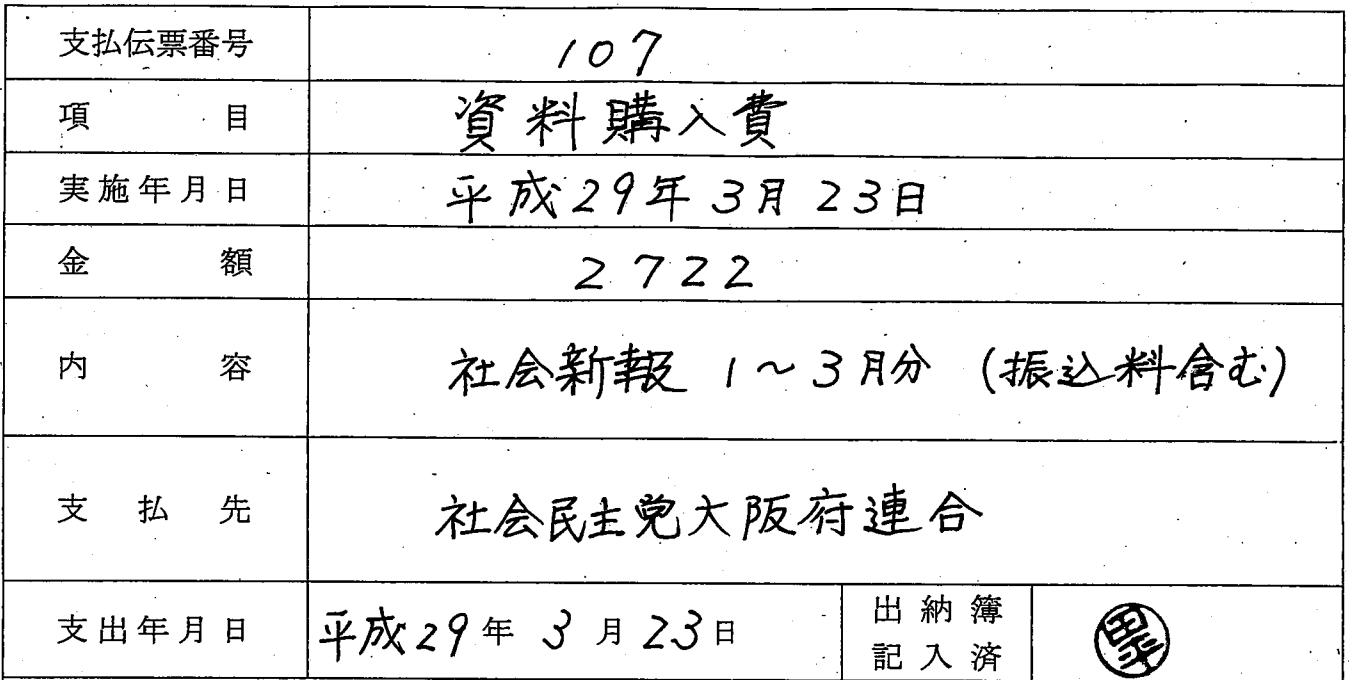 支払伝票番号 107
項目 資料購入費
実施年月日 平成29年3月23日
金額 2722
内容 社会新報 1~3月分 (振込料含む)
支払先 社会民主党大阪府連合
支出年月日 平成29年3月23日 出納簿
記入済